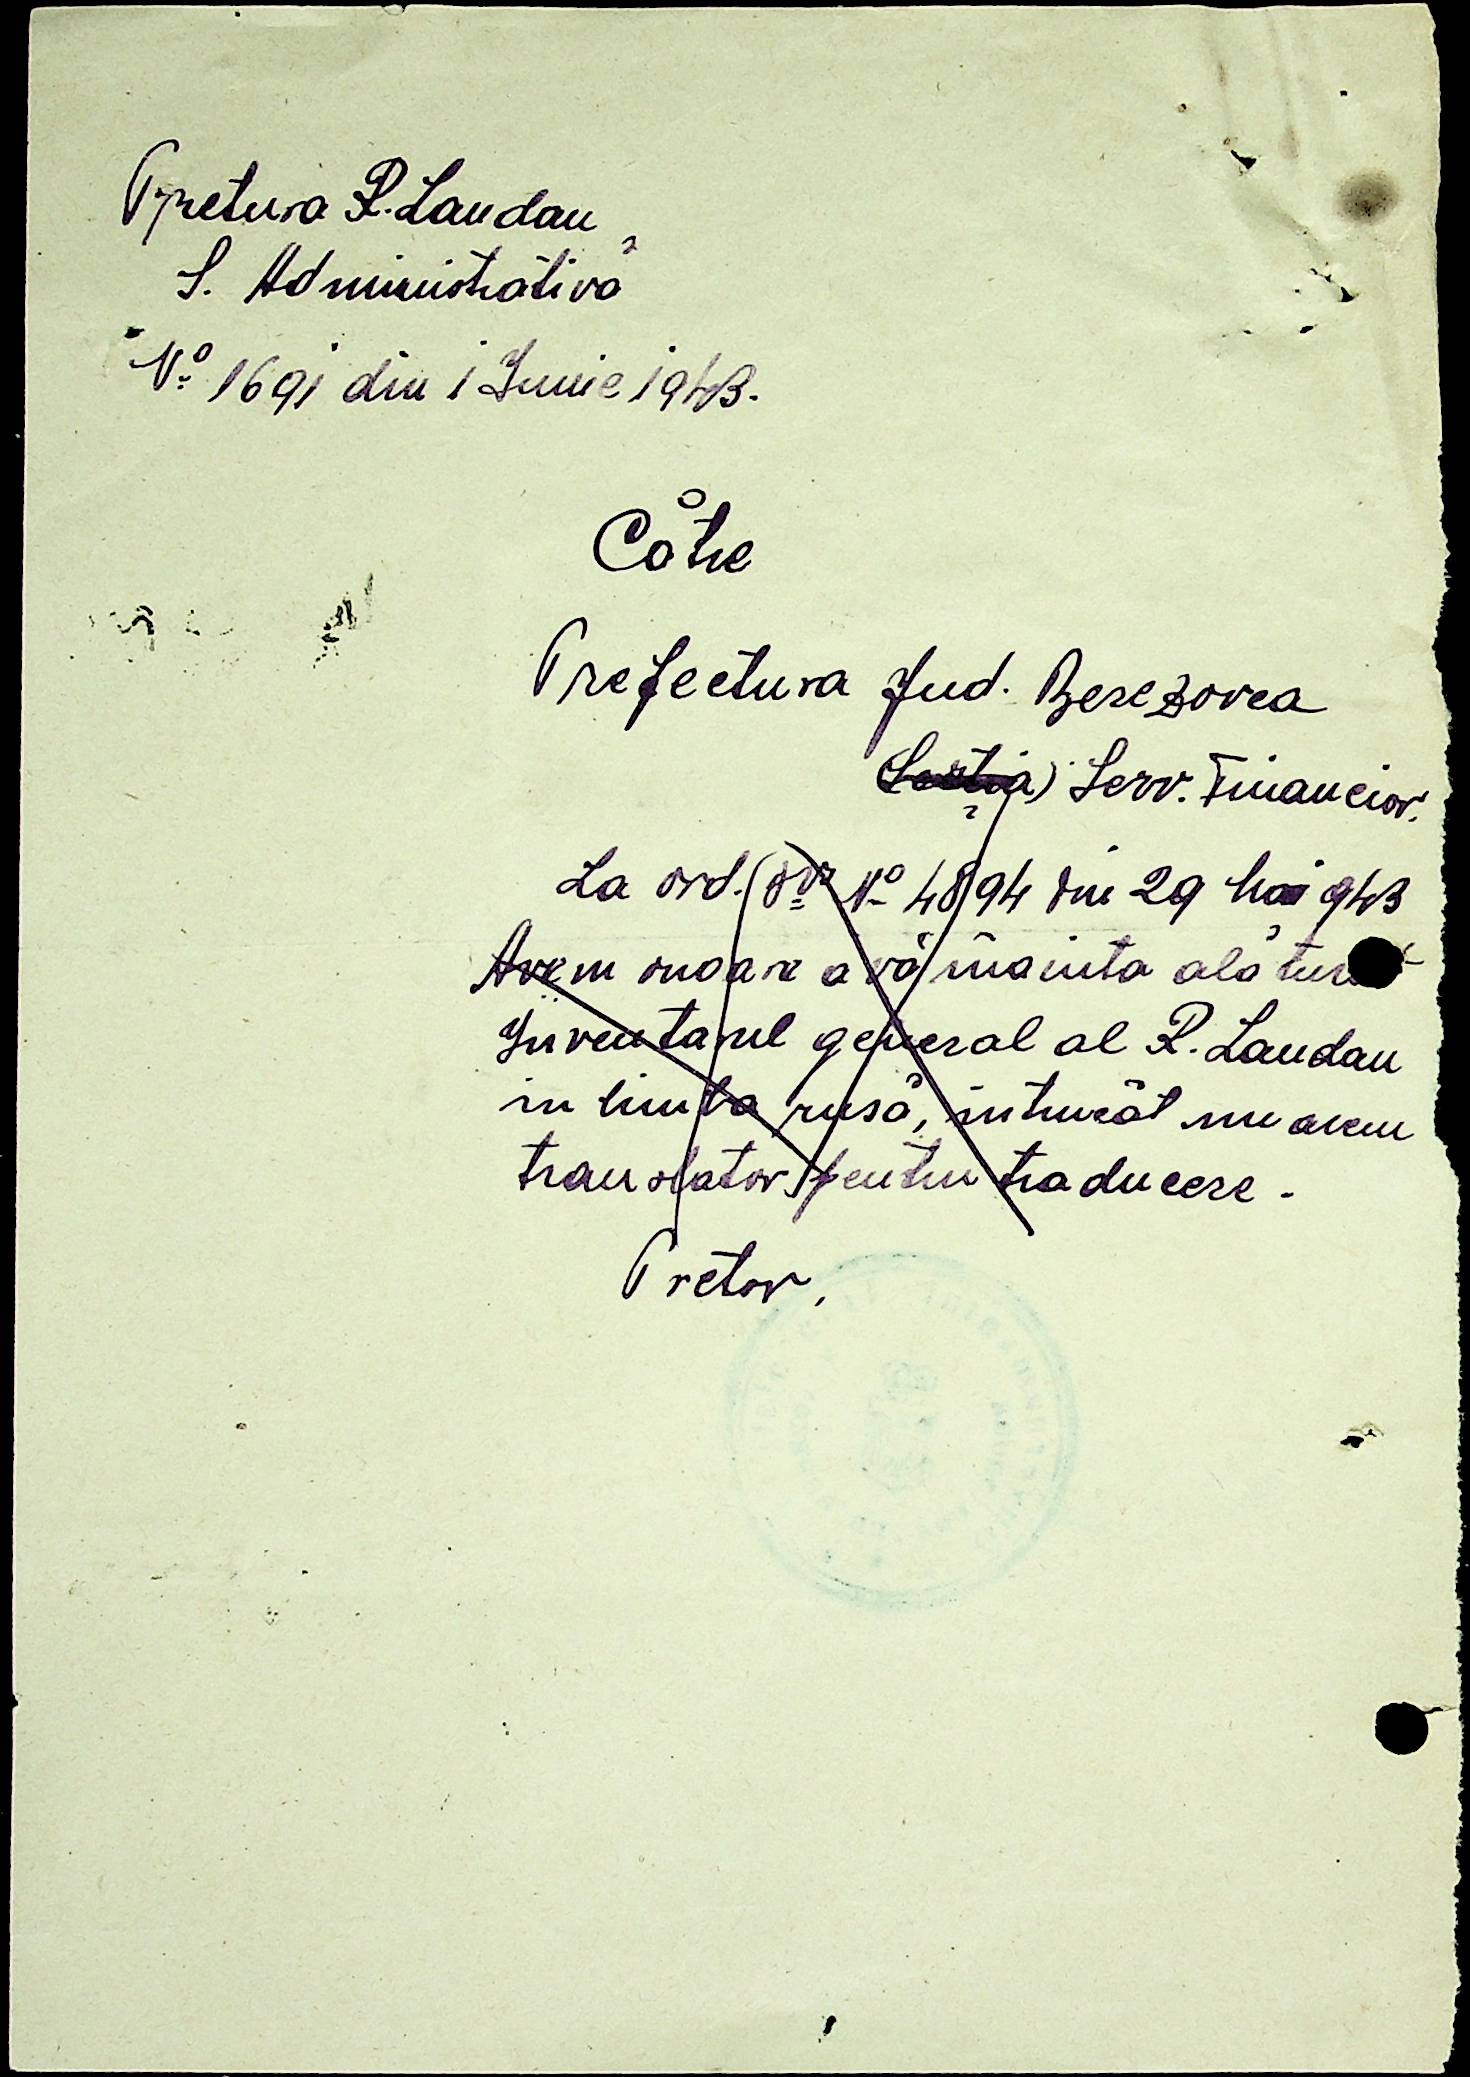 Pretura R. Landau
S. Administrativă
No 1691 din 1 Iunie 1943.
Către
Prefectura Jud. Berezovca
Serv. Financiar.
La ord. Dv No 4894 din 29 Mai 943
Avem onoare a vă înainta alăturat
Inventarul general al R. Landau
in limba rusă, intrucât nu avem
translator pentru traducere.
Pretor,